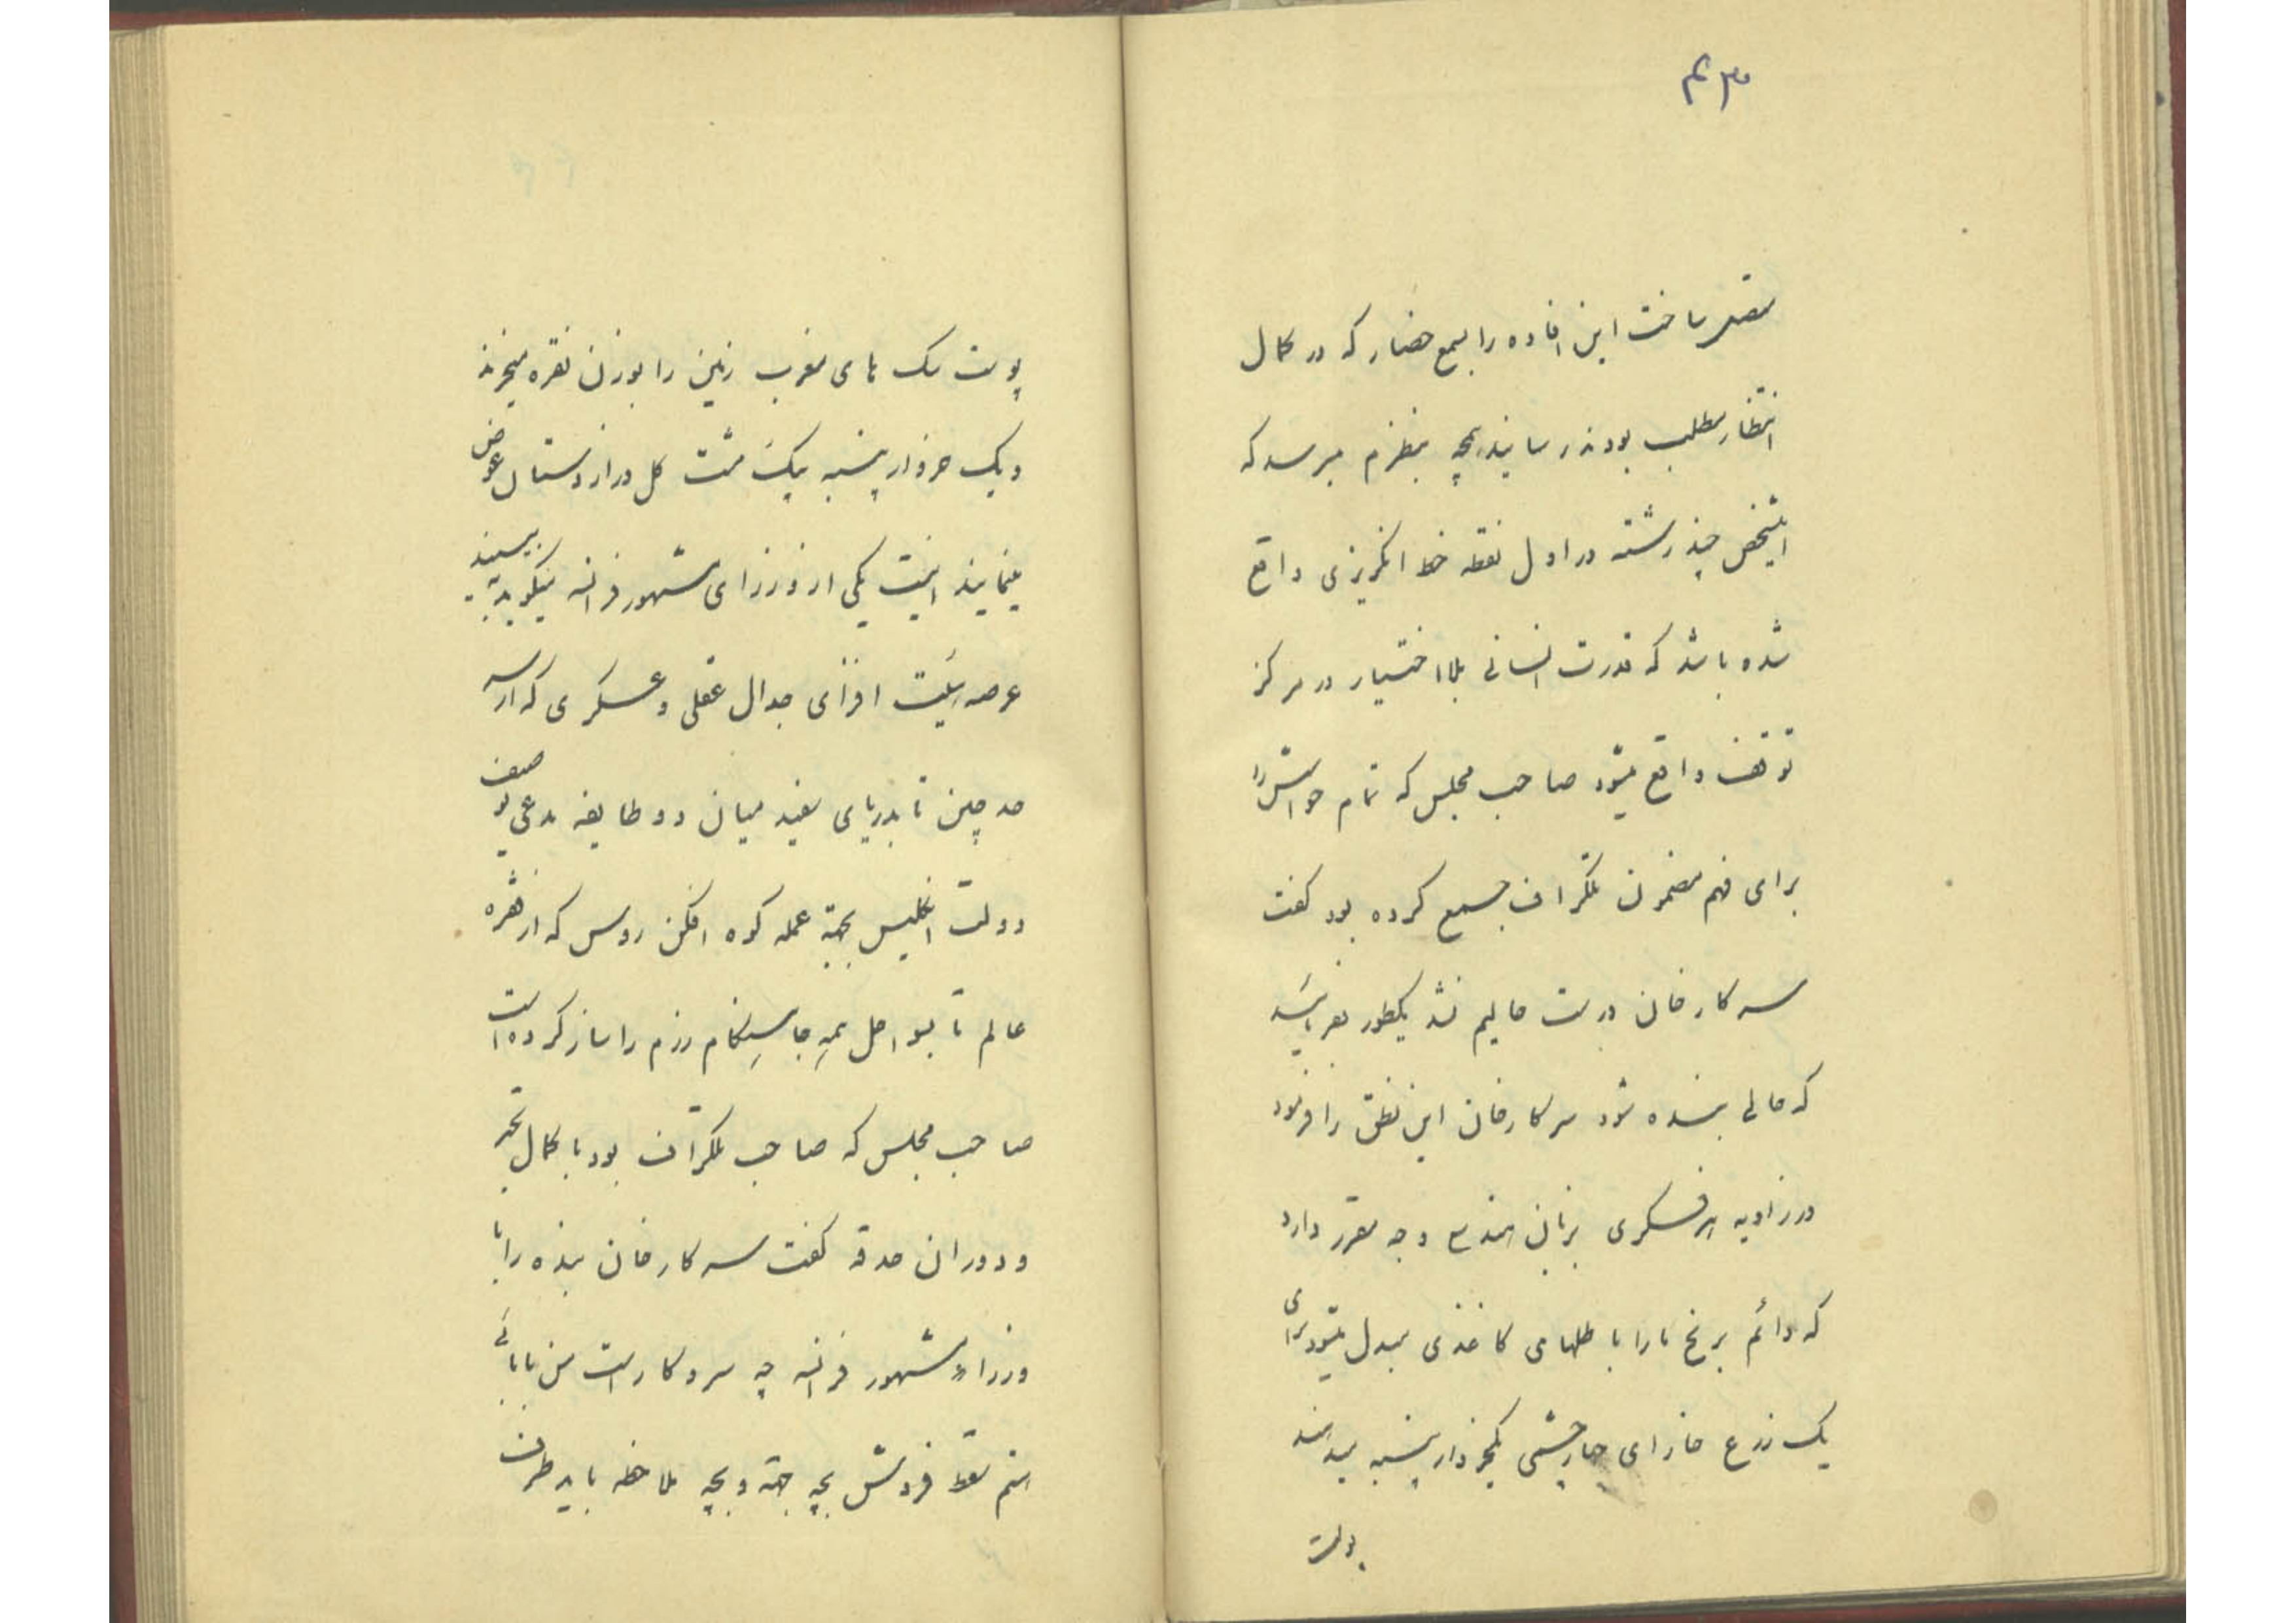 ۳۰م
مقصر ساخت این افاده را بسمع حضار که در کمال
انتظار مطلب بودند رسانید بچه بنظرم میرسد که
اینشخص چند رشته در اول نقطه خط انگریزی واقع
شده باشد که قدرت انسانی بلا اختیار در مرکز
توقف واقع میشود صاحب مجلس که تمام حواسش را
برای فهم مضمون تلگراف جمع کرده بود گفت
سرکار خان درست حالیم نشد یکطور بفرمائید
که حالی بنده شود سرکار خان این نطق را فرمود
در زاویه هر فسکری بزبان هندسه وجه مقرر دارد
که دائم برنج ها را با طلهای کاغذی مبدل میشود برای
یک زرع خارای چهار چشمی یکخروار پنبه میدهند
پوست
پوست سک های مغرب زمین را بوزن نقره میخرند
و یک خروار پنبه بیک مشت کل دراز دستان عوض
مینمایند اینست یکی از وزرای مشهور فرانسه میگوید ببینید
عرصه پلیت افزای جدال عقلی و عسکری که از سر
حد چین تا بدریای سفید میان دو طایفه مدعی بو صف
دولت انگلیس بجهة عمله کوه افکن روس که از نقره
عالم تا بسواحل همه جا سنگام رزم را ساز کرده است
صاحب مجلس که صاحب تلگراف بود با کمال تحیر
و دوران حدقه گفت سرکار خان بنده را با
وزراء مشهور فرانسه چه سر و کار است من بابائی
هستم سقط فروش بچه جهة و بچه ملاحظه باید طرف